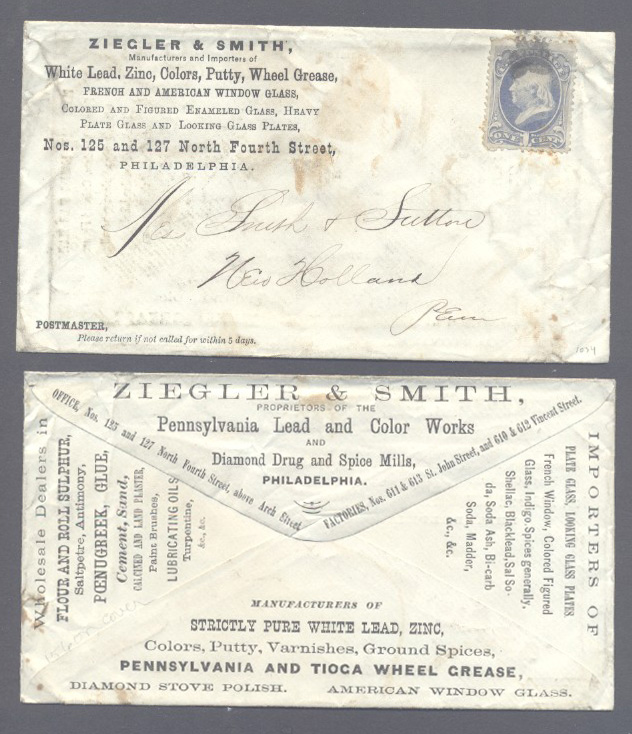 ZIEGLER & SMITH,
Manufacturers and Importers of
White Lead, Zinc, Colors, Putty, Wheel Grease,
FRENCH AND AMERICAN WINDOW GLASS,
COLORED AND FIGURED ENAMELED GLASS, HEAVY
PLATE GLASS AND LOOKING GLASS PLATES,
Nos. 125 and 127 North Fourth Street,
PHILADELPHIA.
ONE CENT
Smith & Sutton
New Holland
Penn
POSTMASTER,
Please return if not called for within 5 days.
1034
ZIEGLER & SMITH,
PROPRIETORS OF THE
Pennsylvania Lead and Color Works
AND
Diamond Drug and Spice Mills,
PHILADELPHIA.
OFFICE, Nos. 125 and 127 North Fourth Street, above Arch Street.
FACTORIES, Nos. 611 & 613 St. John Street, and 610 & 612 Vincent Street.
Wholesale Dealers in
FLOUR AND ROLL SULPHUR,
Saltpetre, Antimony,
PŒNUGREEK, GLUE,
Cement, Sand,
CALCINED AND LAND PLASTER,
Paint Brushes,
LUBRICATING OILS
Turpentine,
&c., &c.
IMPORTERS OF
PLATE GLASS, LOOKING GLASS PLATES
French Window, Colored Figured
Glass, Indigo Spices generally,
Shellac, Blacklead, Sal So-
da, Soda Ash, Bi-carb
Soda, Madder,
&c., &c.
MANUFACTURERS OF
STRICTLY PURE WHITE LEAD, ZINC,
Colors, Putty, Varnishes, Ground Spices,
PENNSYLVANIA AND TIOGA WHEEL GREASE,
DIAMOND STOVE POLISH. AMERICAN WINDOW GLASS.
cover